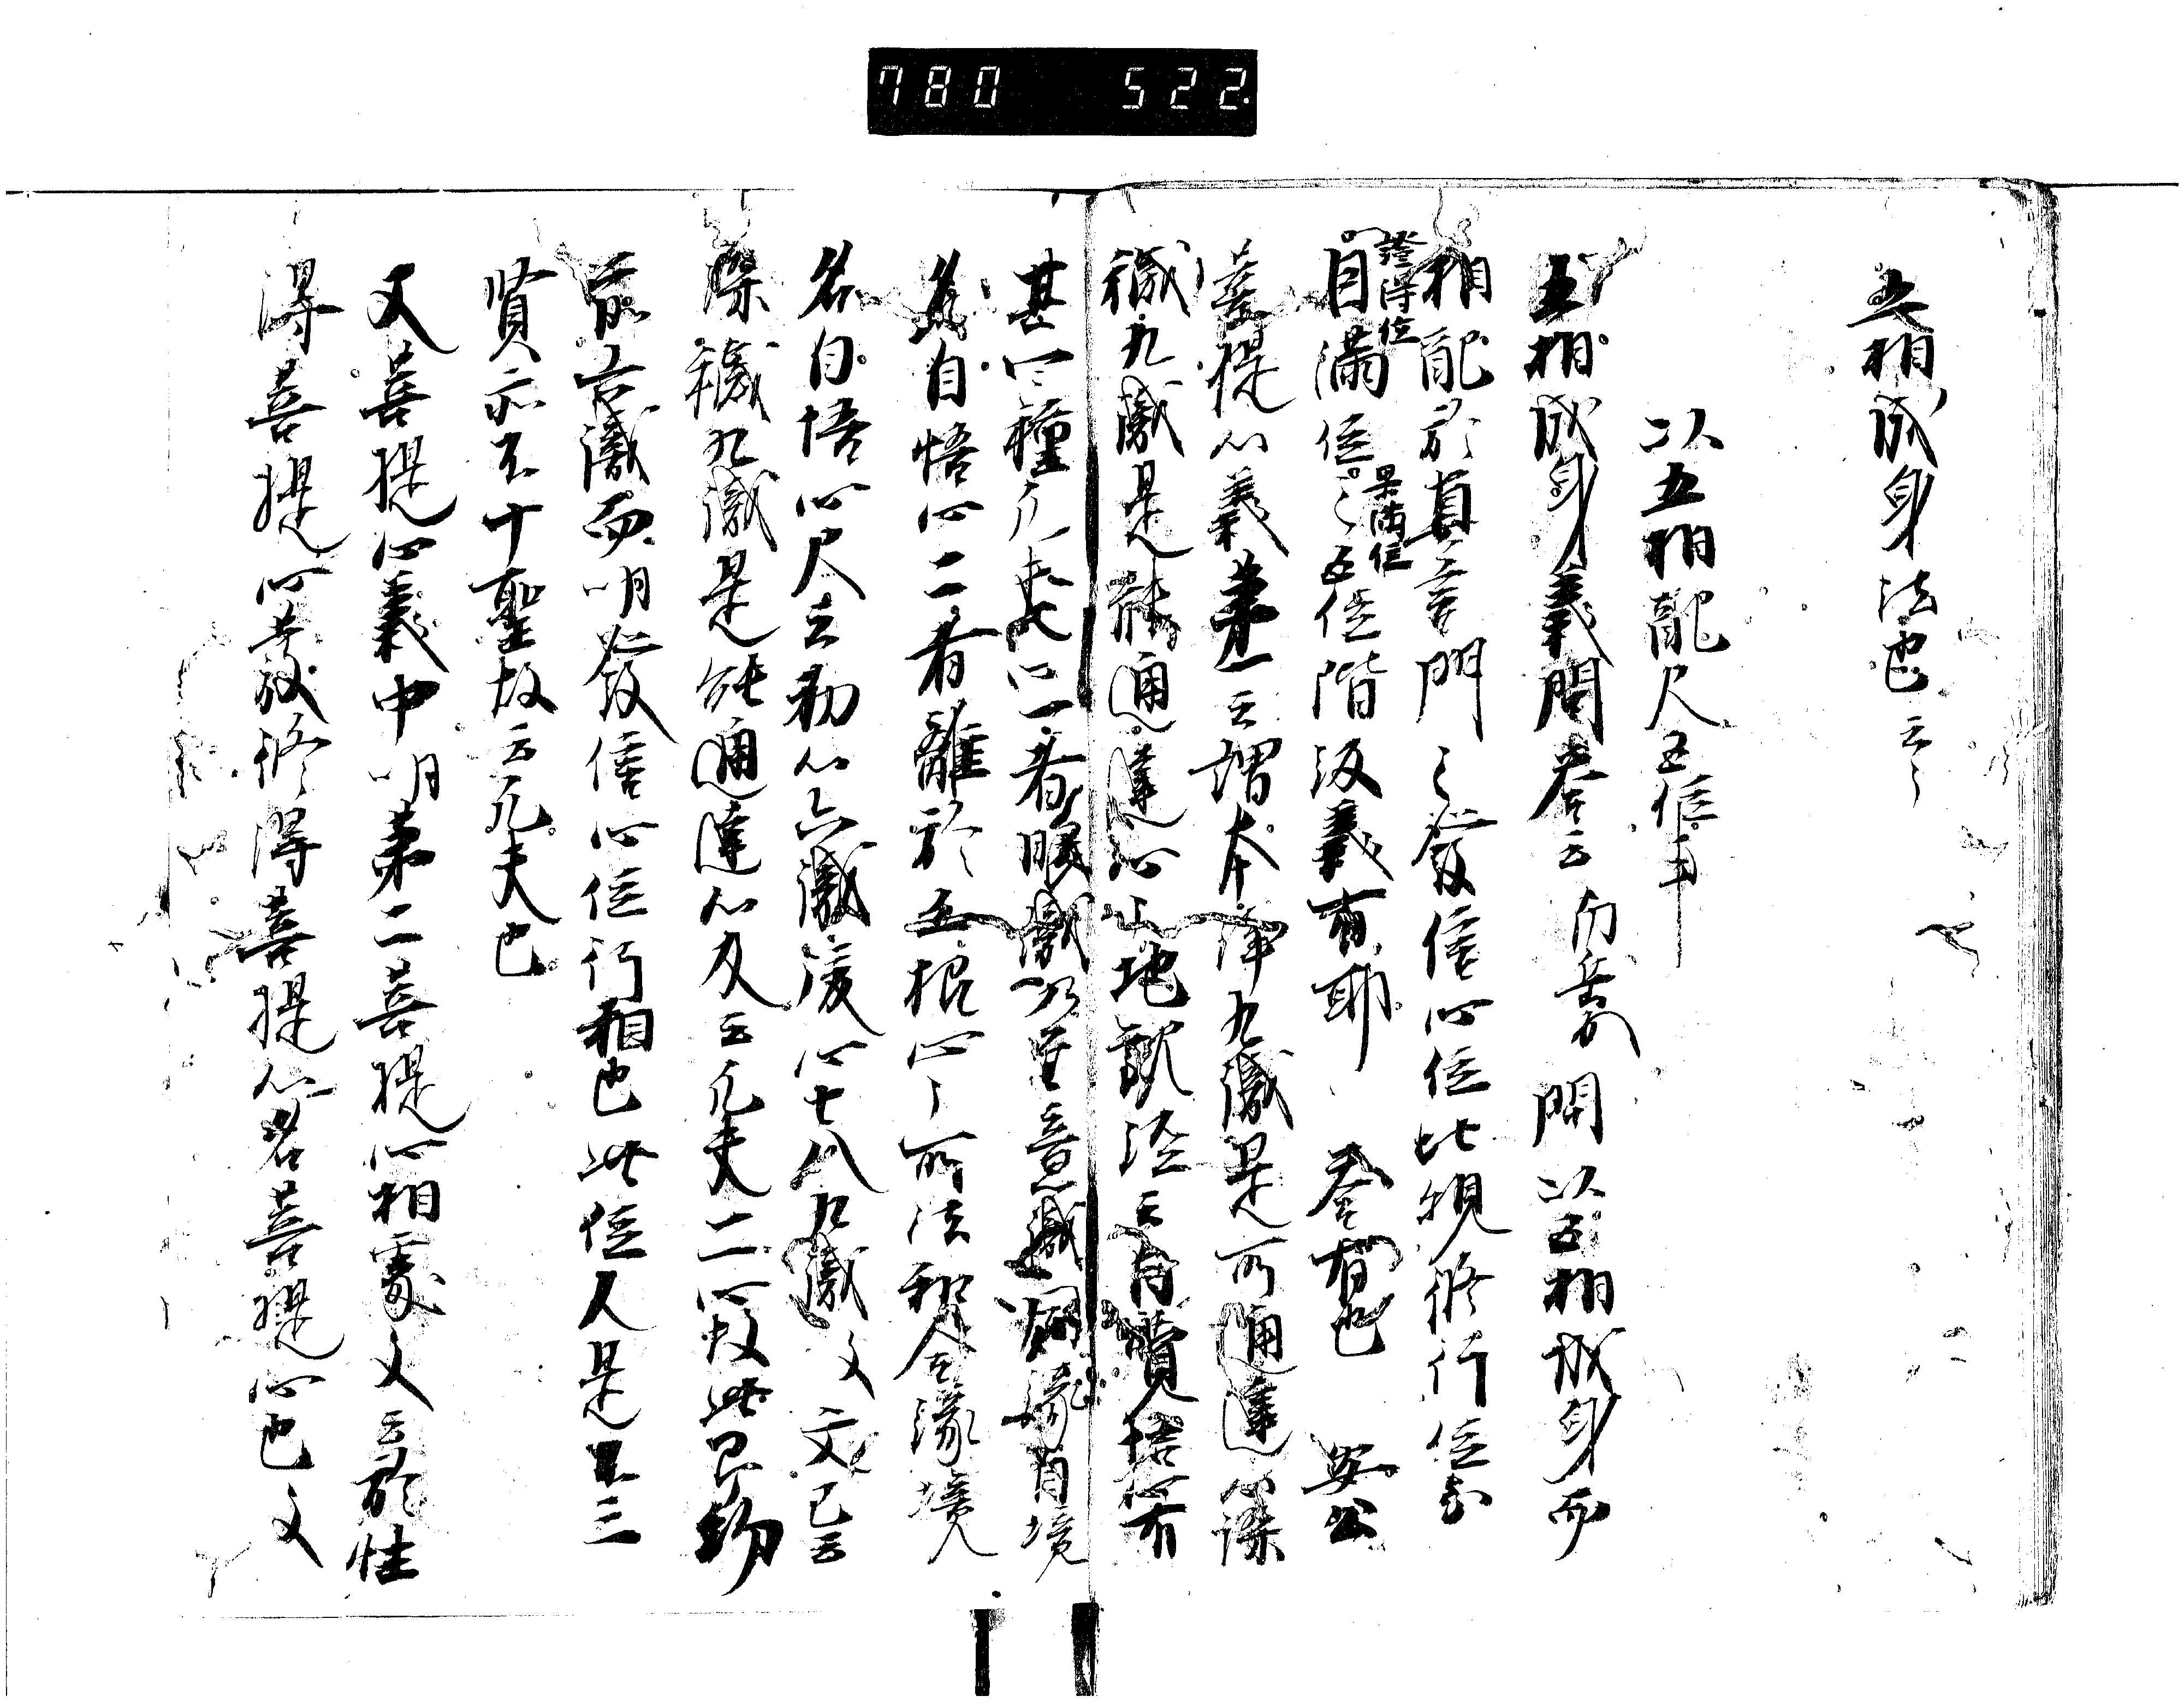 780 522.
五相成身法也云々
以五相配尺五位事
五相成身義問答云 問以五相成身而
相配於真言門之發信心位比観修行位
證得位
自滿位之五位階級義有耶 答有也 安公
果満位
菩提心義第一云謂本淨九識是所通達深
穢九識是能通達心心地観経云自覺悟心有
其四種凡夫二一者眼識乃至意識同縁自境
名自悟心二者離於五根心々所法和合縁境
名自悟心尺云初心六識後心七八九識文 文已云
染穢九識是能通達心又云凡夫二心故此即約
前六識而明發信心位行相也此位人是三
賢亦不十聖故云凡夫也
又菩提心義中明第二菩提心相處文云於性
得菩提心發修得菩提心名菩提心也文